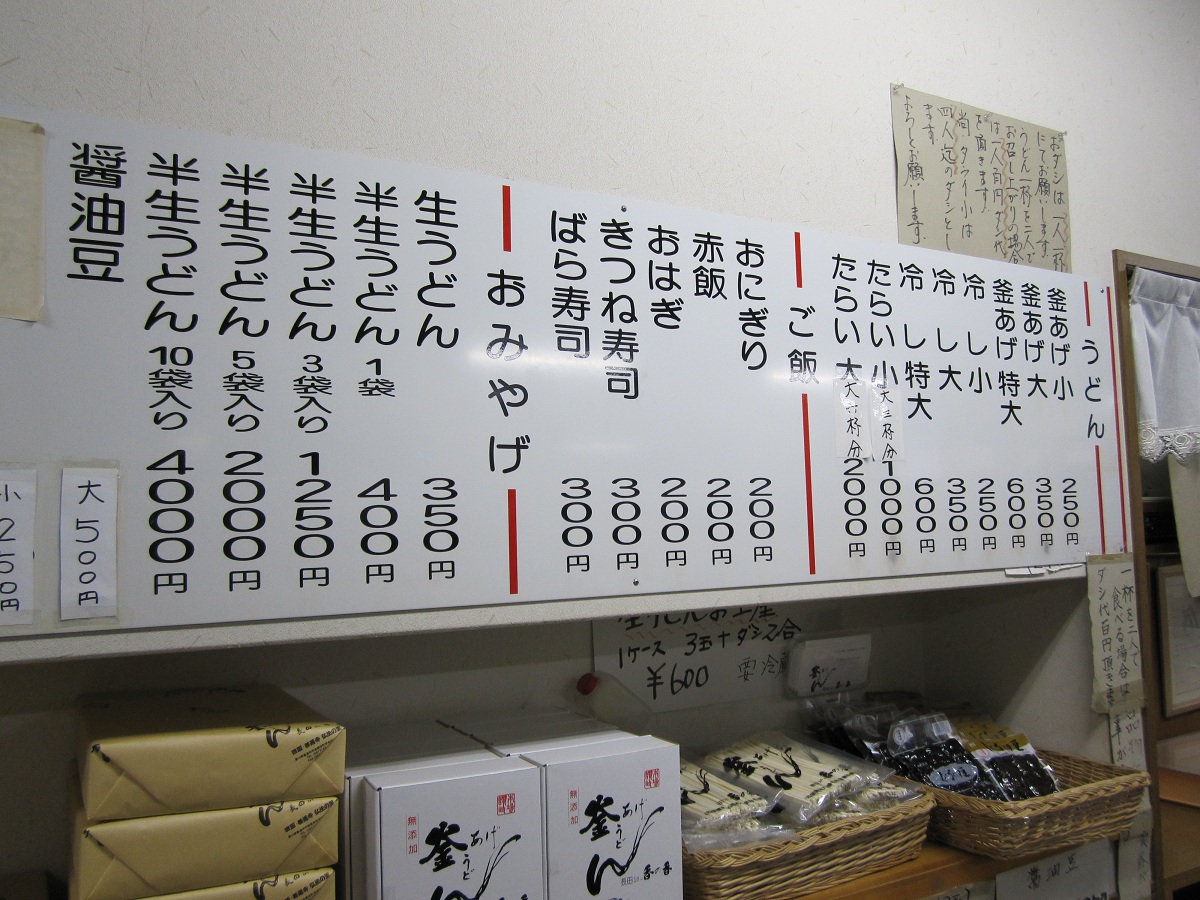 うどん
釜あげ 小 250円
釜あげ 大 350円
釜あげ 特大 600円
冷し 小 250円
冷し 大 350円
冷し 特大 600円
たらい 小 大三杯分 1000円
たらい 大 大六杯分 2000円
ご飯
おにぎり 200円
赤飯 200円
おはぎ 200円
きつね寿司 300円
ばら寿司 300円
おみやげ
生うどん 350円
半生うどん 1袋 400円
半生うどん 3袋入り 1250円
半生うどん 5袋入り 2000円
半生うどん 10袋入り 4000円
醤油豆
大 500円
小 250円
おダシは一人一杯
にてお願いします
うどん一杯を二人で
お召し上がりの場合
は一人百円ダシ代
を頂きます
尚タライ小は
四人迄のダシとし
ます
よろしくお願いします
一杯を二人で
食べる場合は
ダシ代百円頂きます
1ケース 3玉+ダシ2合
¥600 要冷
無添加
釜あげうどん
無添加
釜あげうどん
長田in香の香
醤油豆